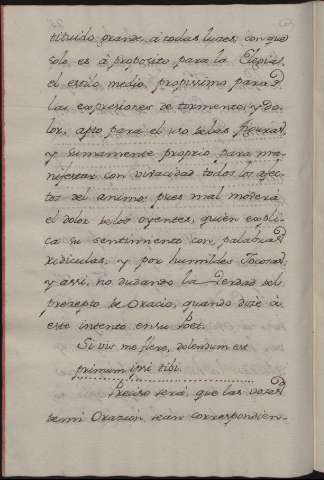 tituido grande, á todas luces, con que
solo es á proposito para la Elegía,
el estilo medio, propissimo para
las expresiones de tormento, y do-
lor, apto para el uso de las figuras,
y sumamente proprio para ma-
nifestar con vivacidad todos los afec-
tos del ánimo; pues mal moderá
el dolor de los oyentes, quien expli-
ca su sentimiento con palabras
ridiculas, y por humildes Jocosas,
y assi, no dudando la verdad del
precepto de Oracio, quando dice á
este intento en su Poet.
Si vis me flere, dolendum est
primum ipsi tibi.
Preciso será, que las voces
de mi Oración, sean correspondien-